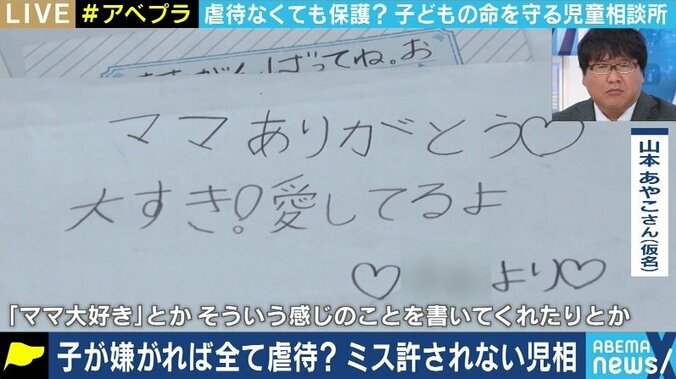 LIVE #アベプラ 虐待なくても保護? 子どもの命を守る児童相談所
がんばってね。お
ママありがとう♡
大すき!愛してるよ
♡ より♡
山本 あやこさん(仮名)
「ママ大好き」とか そういう感じのことを書いてくれたりとか
子が嫌がれば全て虐待? ミス許されない児相
ABEMA news